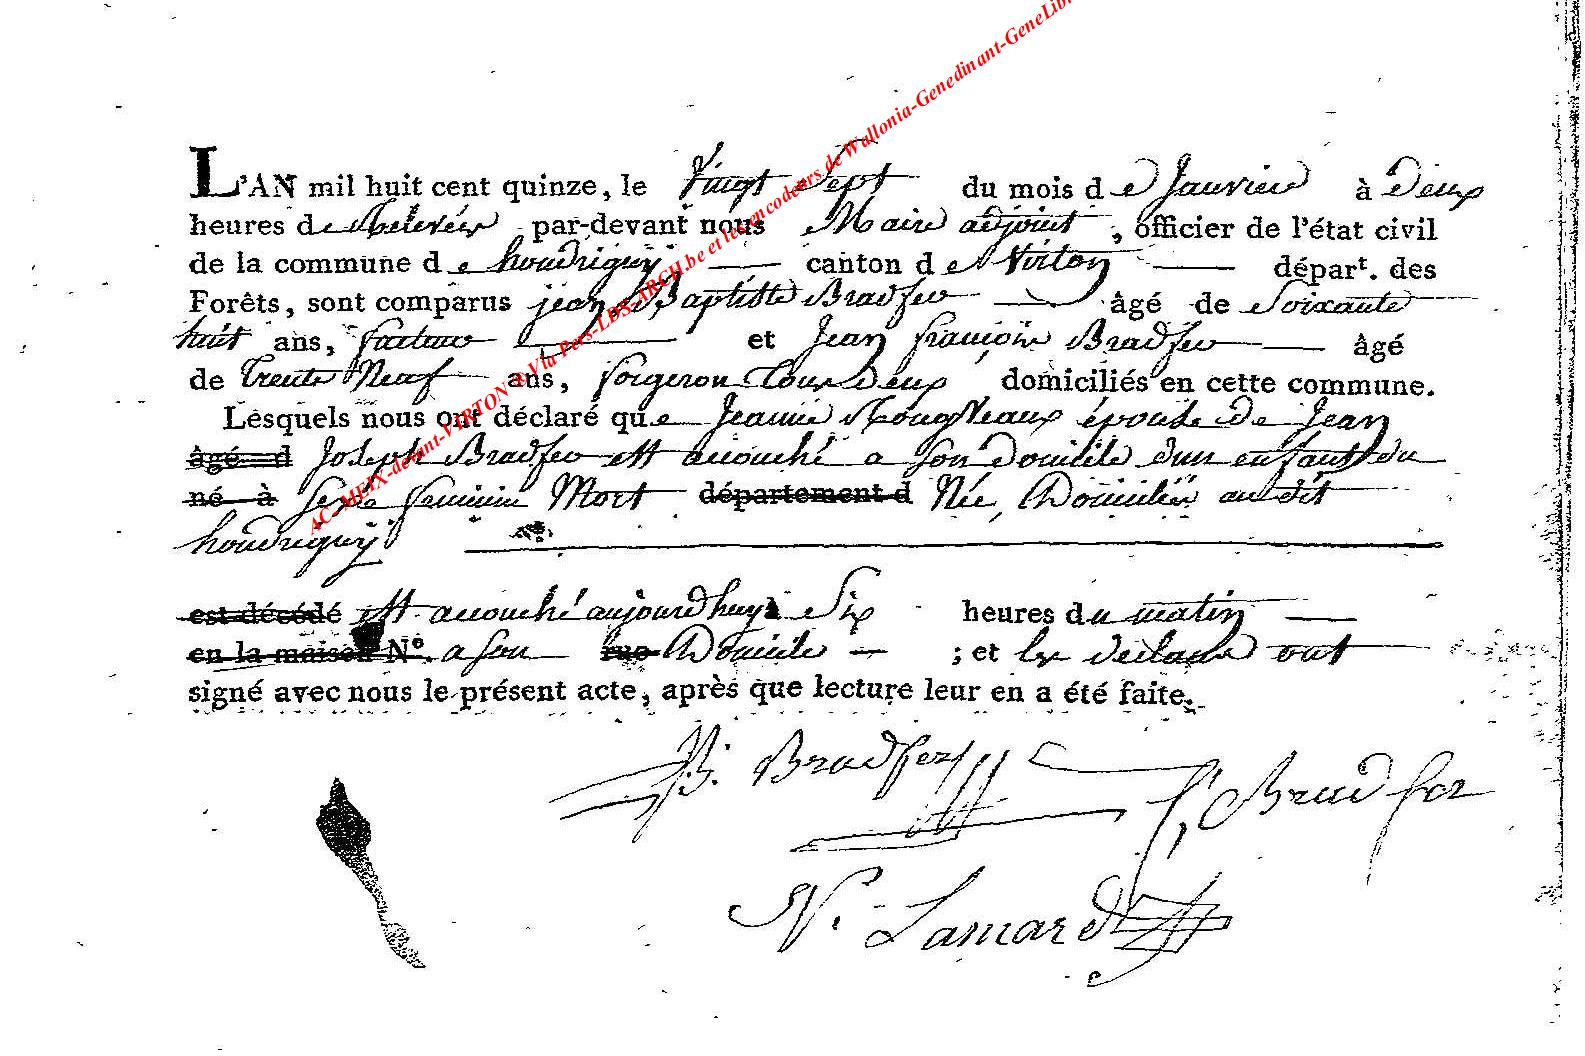 L'AN mil huit cent quinze, le Vingt Sept du mois de Janvier à deux
heures de relevée par-devant nous Maire adjoint, officier de l'état civil
de la commune de houdrigny canton de Virton départ. des
Forêts, sont comparus jean Baptiste Bradfer âgé de Soixante
huit ans, et Jean françois Bradfer âgé
de Trente Neuf ans, forgeron tous deux domiciliés en cette commune.
Lesquels nous ont déclaré que Jeanne épouse de Jean
âgé d Joseph Bradfer est accouché a son domicile d'un enfant du
né à sexe feminin Mort département d Née, Domicilié au dit
houdrigny
est décédé est accouché aujourdhuy a Six heures du matin
en la maison N°. a son rue Domicile ; et les ont
signé avec nous le présent acte, après que lecture leur en a été faite.
B. Bradfer
f, Bradfer
N. Lamard
AC-MEIX-devant-VIRTON Via Pers-LDS-ARCH.be et les encodeurs de Wallonia-Genedinant-GeneLib